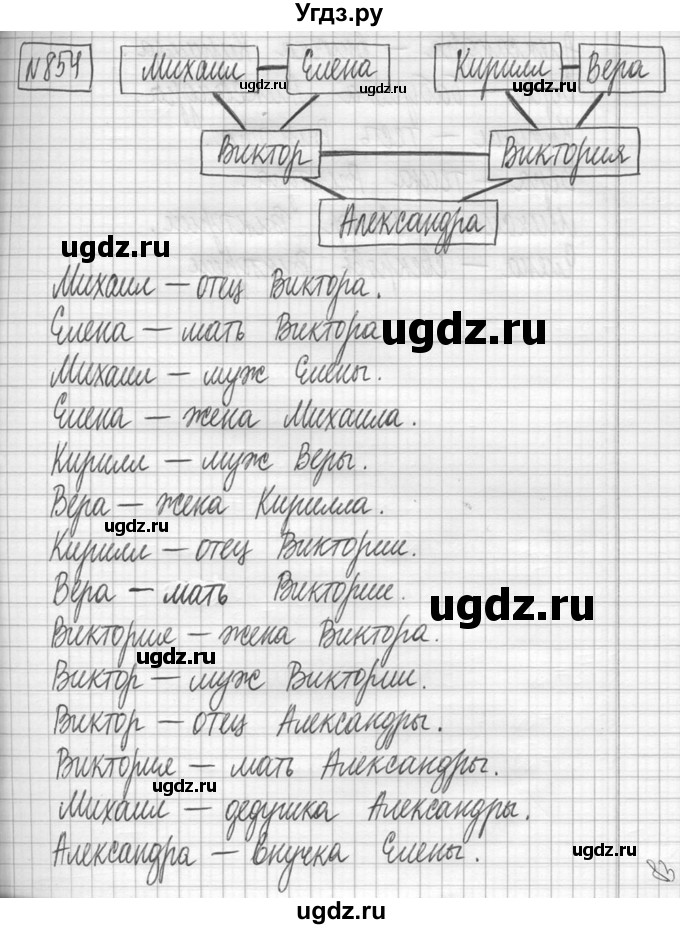 Угдз.ру
№854 Михаил Елена Кирилл Вера
ugdz.ru ugdz.ru ugdz.ru
Виктор Виктория
Александра
ugdz.ru
Михаил – отец Виктора.
Елена – мать Виктора ugdz.ru
Михаил – муж Елены.
Елена – жена Михаила.
Кирилл – муж Веры.
Вера – жена Кирилла.
ugdz.ru
Кирилл – отец Виктории.
Вера – мать Виктории.
ugdz.ru
Виктория – жена Виктора.
ugdz.ru
Виктор – муж Виктории.
Виктор – отец Александры.
Виктория – мать Александры.
ugdz.ru
Михаил – дедушка Александры.
Александра – внучка Елены.
ugdz.ru
ugdz.ru